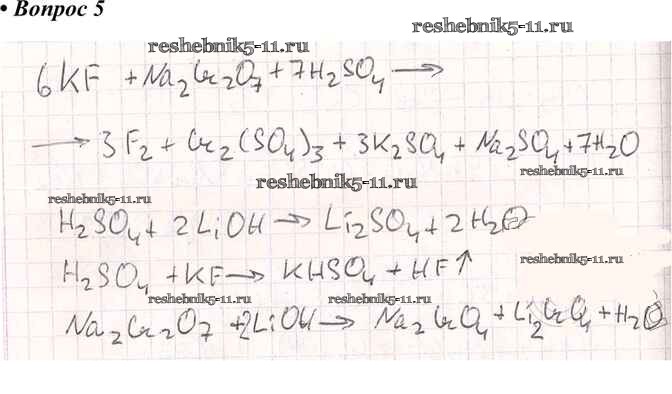 • Вопрос 5
reshebnik5-11.ru
reshebnik5-11.ru
6KF + Na₂Cr₂O₇ + 7H₂SO₄ ⟶
⟶ 3F₂ + Cr₂(SO₄)₃ + 3K₂SO₄ + Na₂SO₄ + 7H₂O
reshebnik5-11.ru
reshebnik5-11.ru
reshebnik5-11.ru
H₂SO₄ + 2LiOH ⟶ Li₂SO₄ + 2H₂O
H₂SO₄ + KF ⟶ KHSO₄ + HF↑
reshebnik5-11.ru
reshebnik5-11.ru
reshebnik5-11.ru
Na₂Cr₂O₇ + 2LiOH ⟶ Na₂CrO₄ + Li₂CrO₄ + H₂O